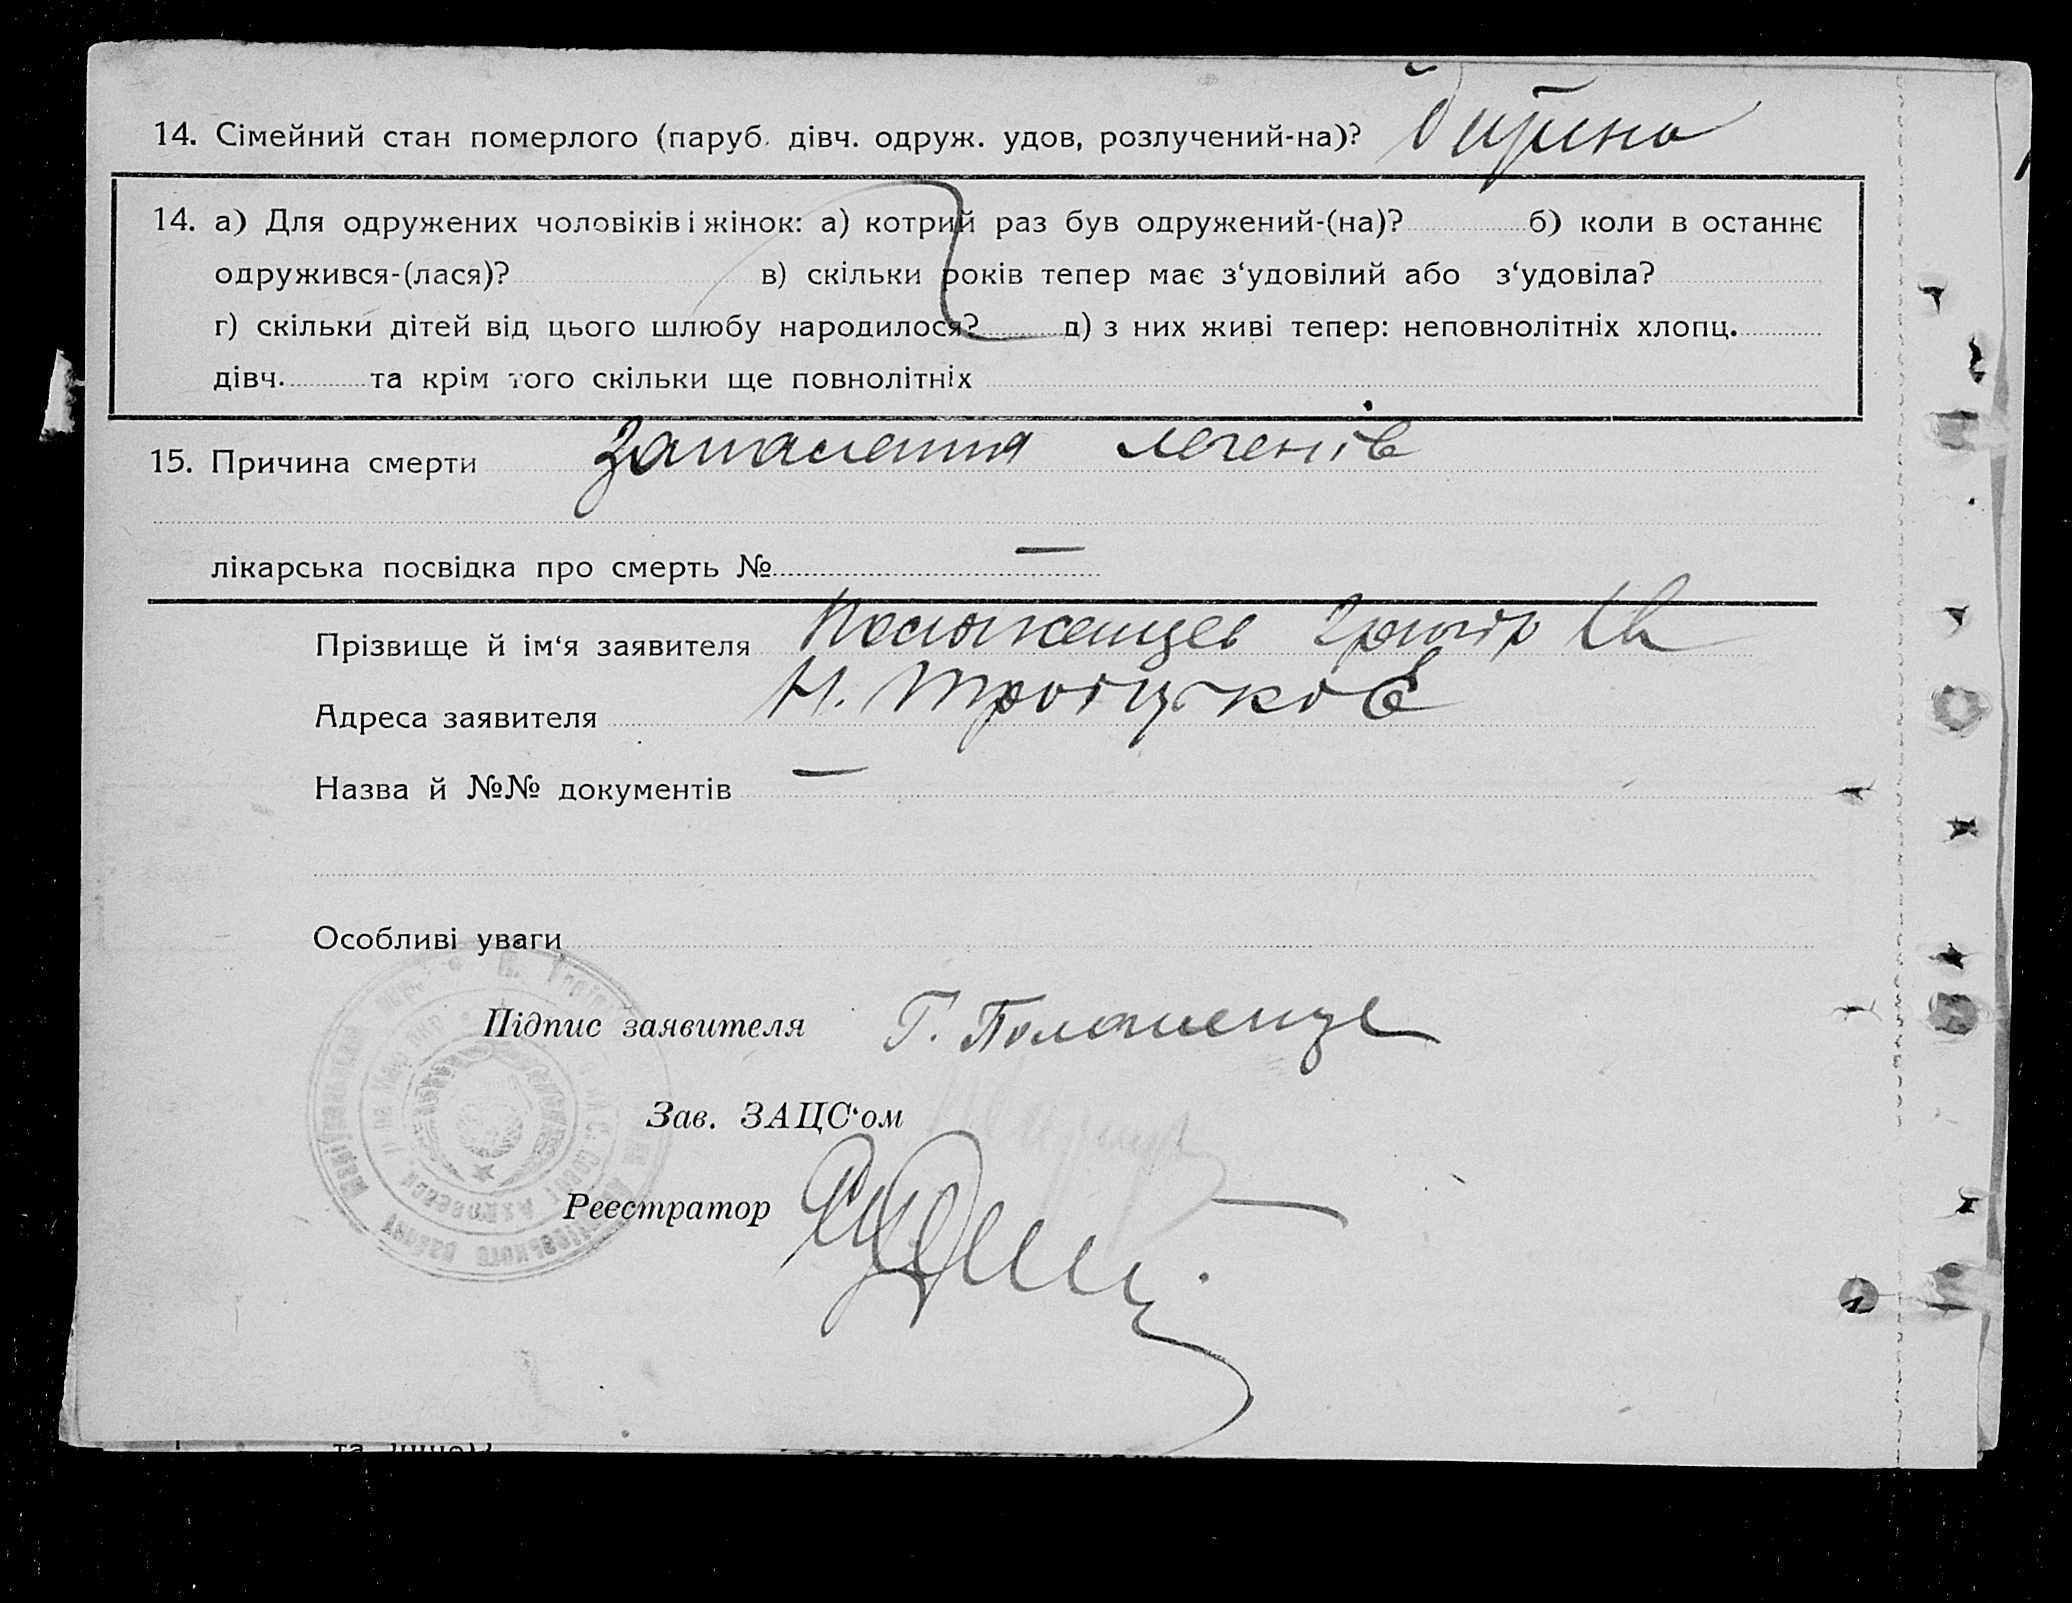 14. Сімейний стан померлого (паруб. дівч. одруж. удов, розлучений-на)? Дитина
14. а) Для одружених чоловіків і жінок: а) котрий раз був одружений-(на)? б) коли в останнє
одружився-(лася)? в) скільки років тепер має з‘удовілий або з‘удовіла?
г) скільки дітей від цього шлюбу народилося? д) з них живі тепер: неповнолітніх хлопц.
дівч. та крім того скільки ще повнолітніх
15. Причина смерти Запалення легенів
лікарська посвідка про смерть № —
Прізвище й ім‘я заявителя
Адреса заявителя Н.
Назва й №№ документів —
Особливі уваги
Підпис заявителя Г.
Зав. ЗАЦС‘ом
Реєстратор